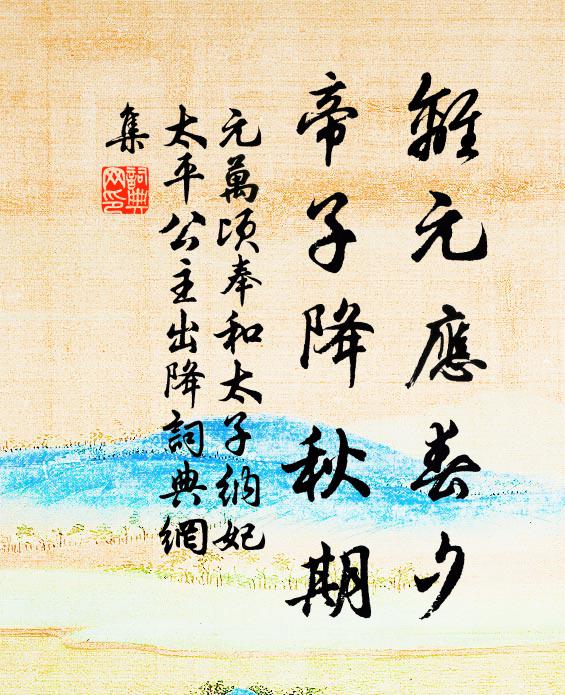 離元應春夕
帝子降秋期
元萬頃奉和太子納妃
太平公主出降詞典網
集
詞典
网印